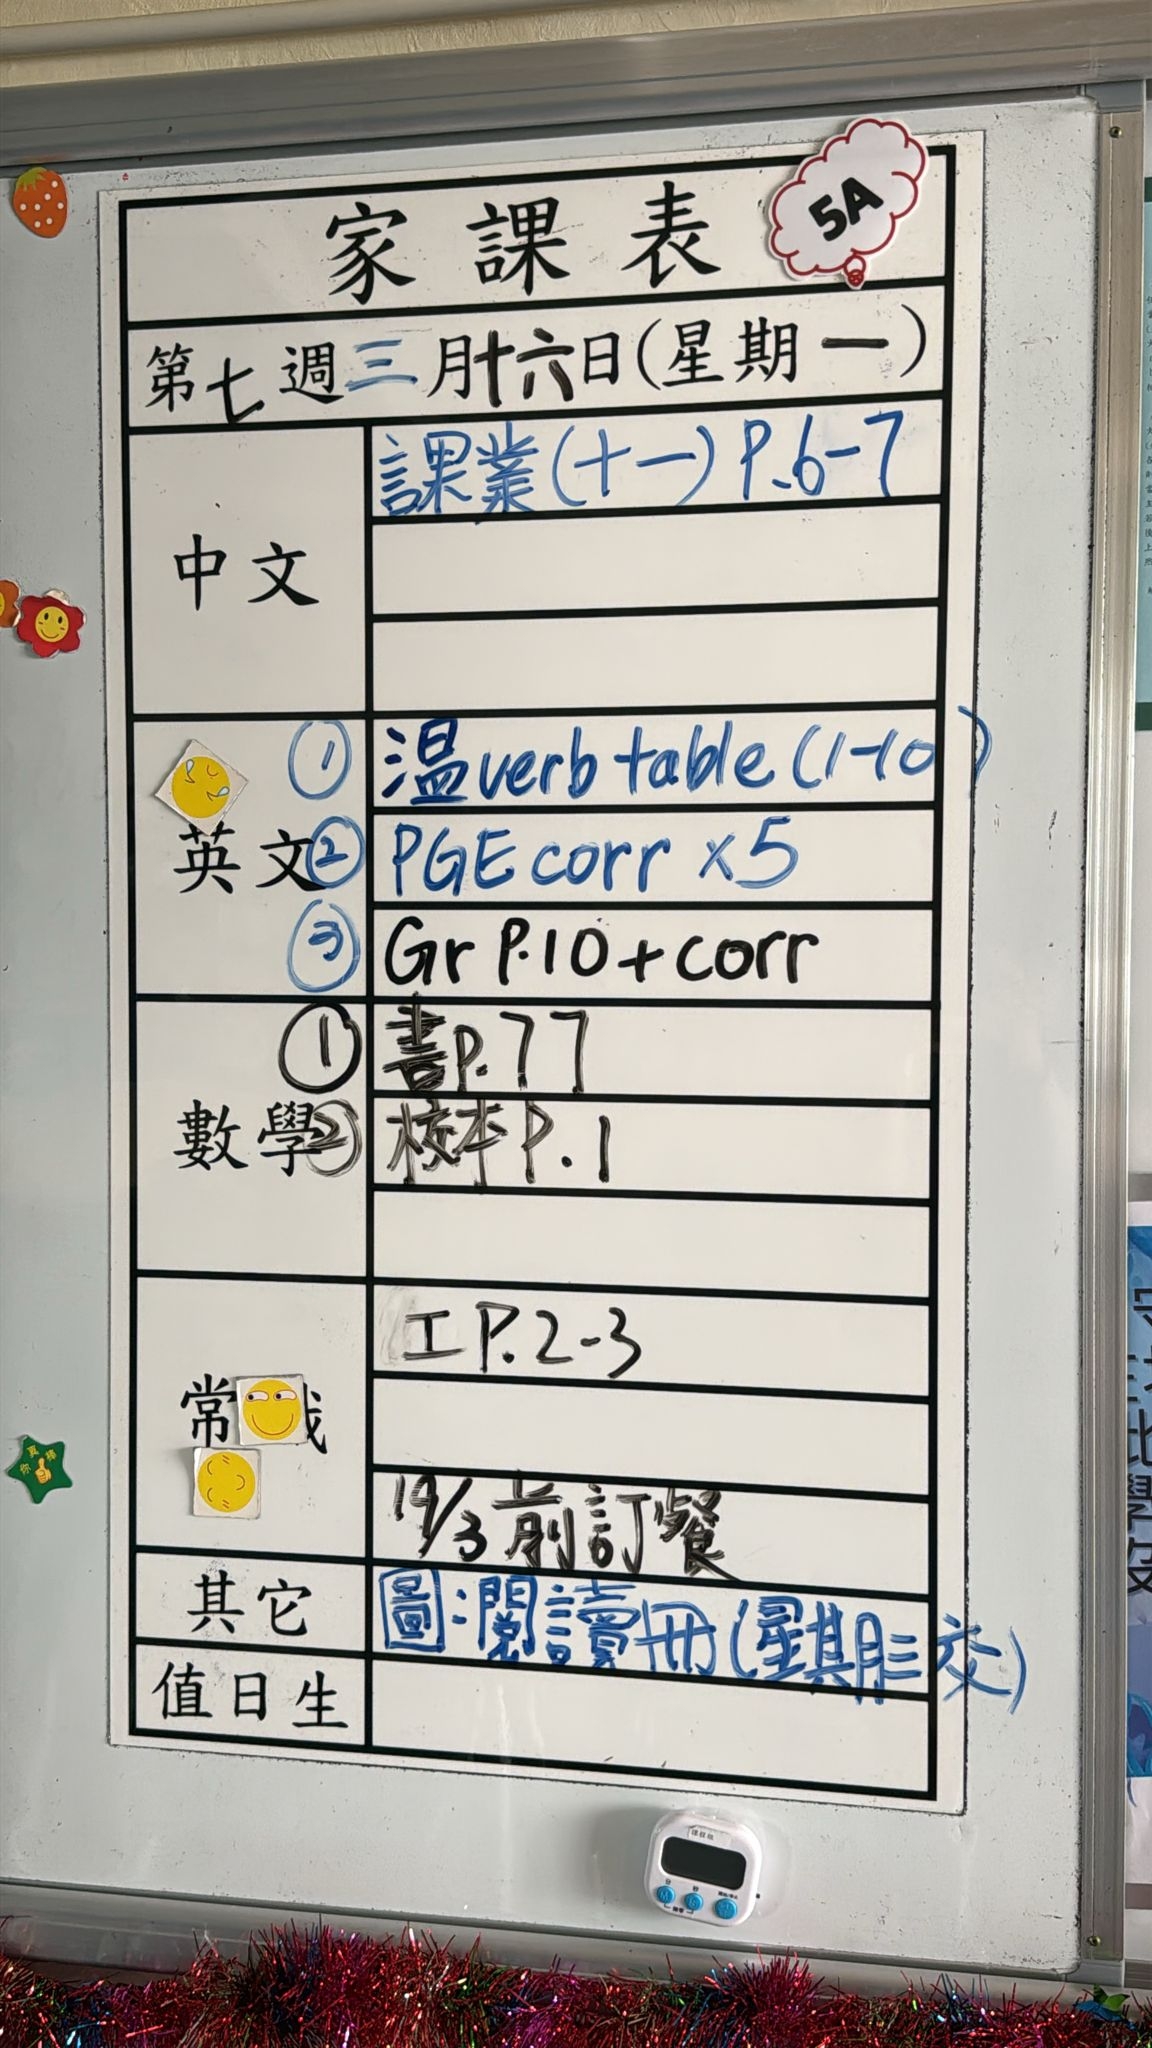 家課表
5A
第七週三月十六日(星期一)
中文
課業(十一) P.6-7
英文
① 温verb table (1-10)
② PGE corr x5
③ Gr P.10 + corr
數學
① 書P.77
② 校本P.1
常
工 P.2-3
19/3前訂餐
其它
圖:閱讀冊(星期三交)
值日生
真棒
你